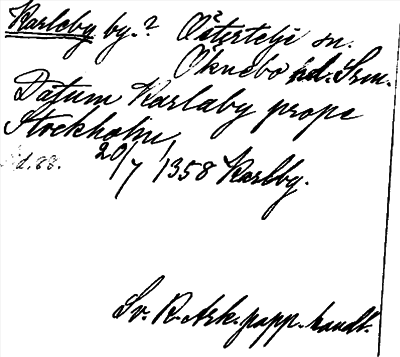 Karleby by.? Östertelje sn.
Öknebo hd. Srm.
Datum Karlaby prope
Stockholm,
20/7 1358 Karlby.
Sv. R. Ark. papp. handl.